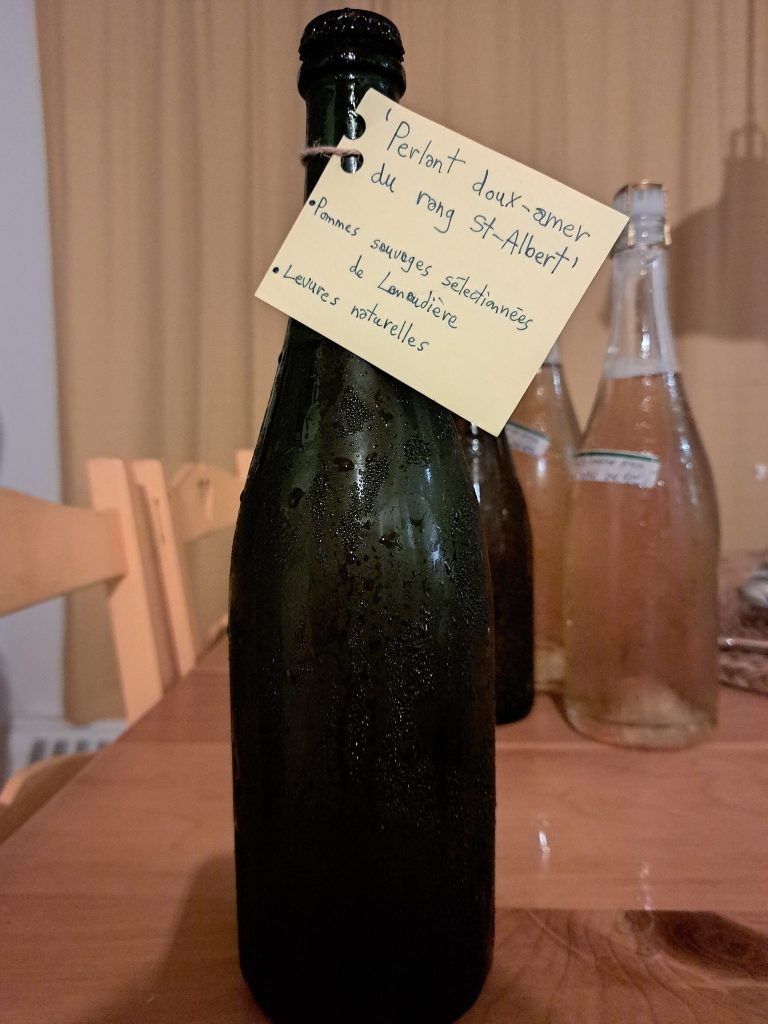 'Perlant doux-amer
du rang St-Albert'
• Pommes sauvages sélectionnées
de Lanaudière
• Levures naturelles